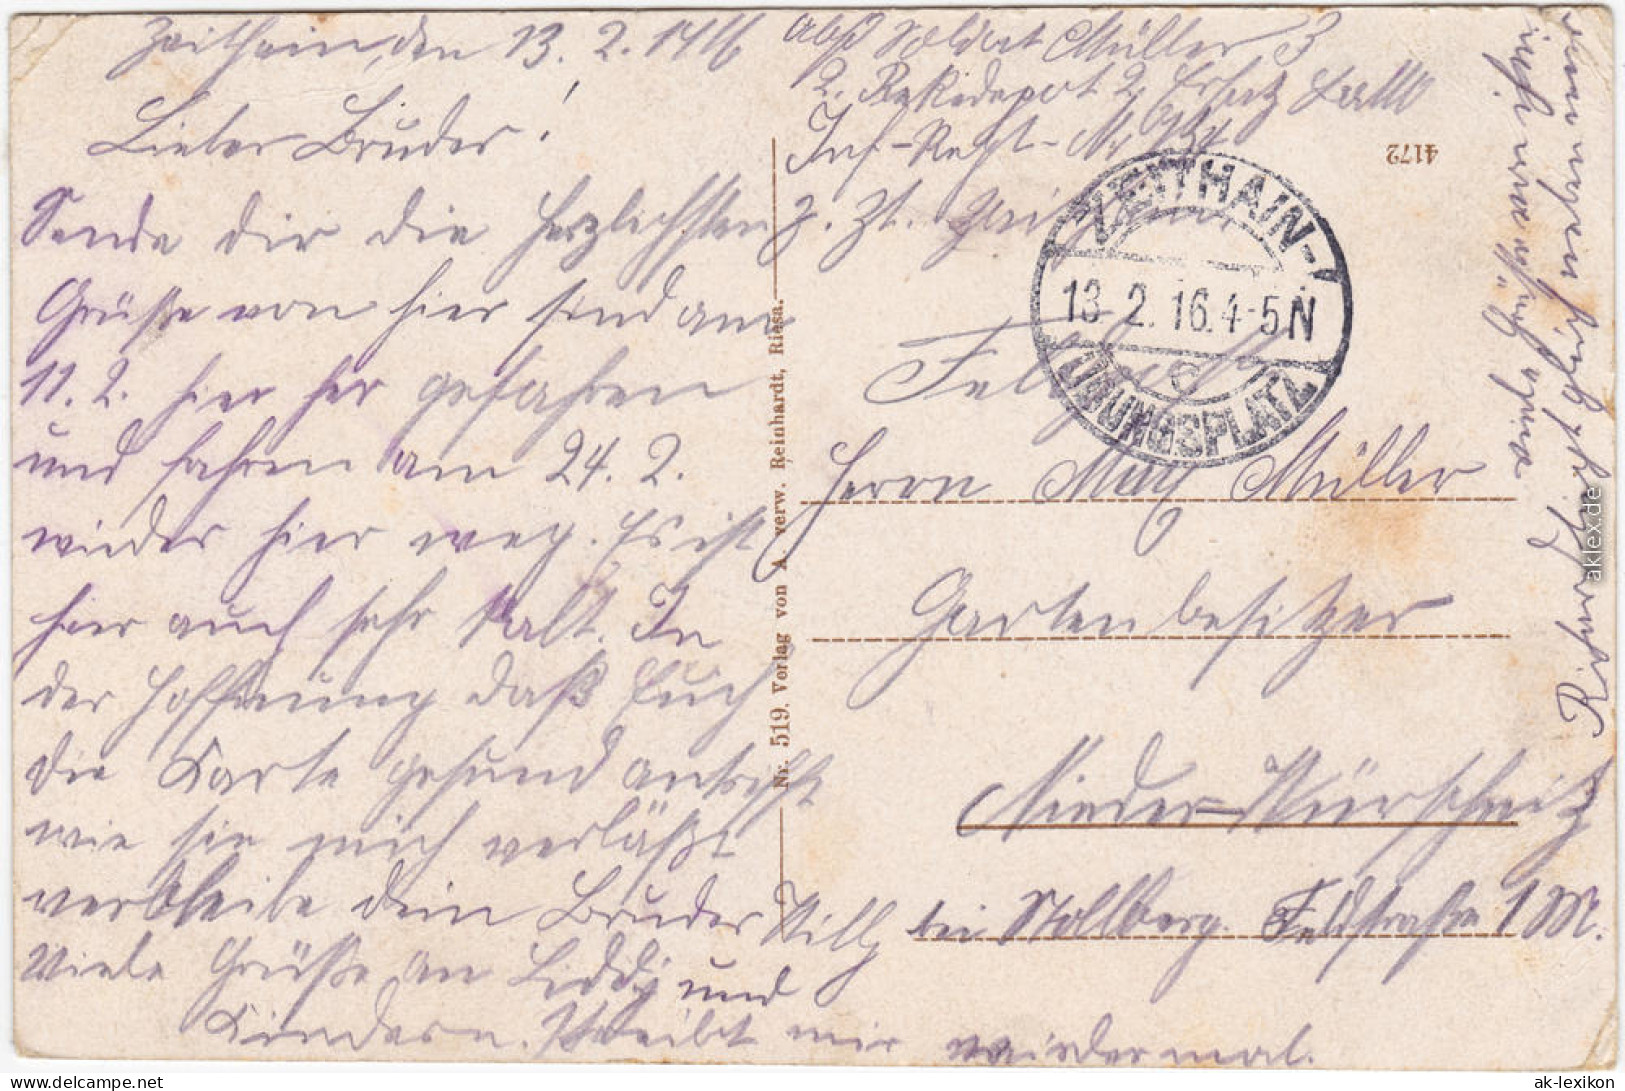 Zeithain, den 13. 2. 1916
Lieber Bruder!
Sende dir die herzlichsten
Grüße von hier sind am
11. 2. hier her gefahren
und fahren am 24. 2.
wieder hier weg. Es ist
hier auch sehr kalt. In
der Hoffnung daß Euch
die Karte gesund antrifft
wie sie mich verläßt
verbleibe dein Bruder Willy
Viele Grüße an Liddy und
Kindern. Schreibt mir wiedermal.
Abs Soldat Müller 3
2. Rekr.depot 2. Ersatz Batl
Inf-Regt- Nr
z. Zt. Zeithain
4172
ZEITHAIN-
13. 2. 16. 4-5 N
ÜBUNGSPLATZ
Feldpost
Herrn Max Müller
Gartenbesitzer
Nieder-Würschnitz
bei Stollberg. Feldstraße 1 M.
Nr. 519. Verlag von A. verw. Reinhardt, Riesa.
aklex.de
www.delcampe.net
ak-lexikon